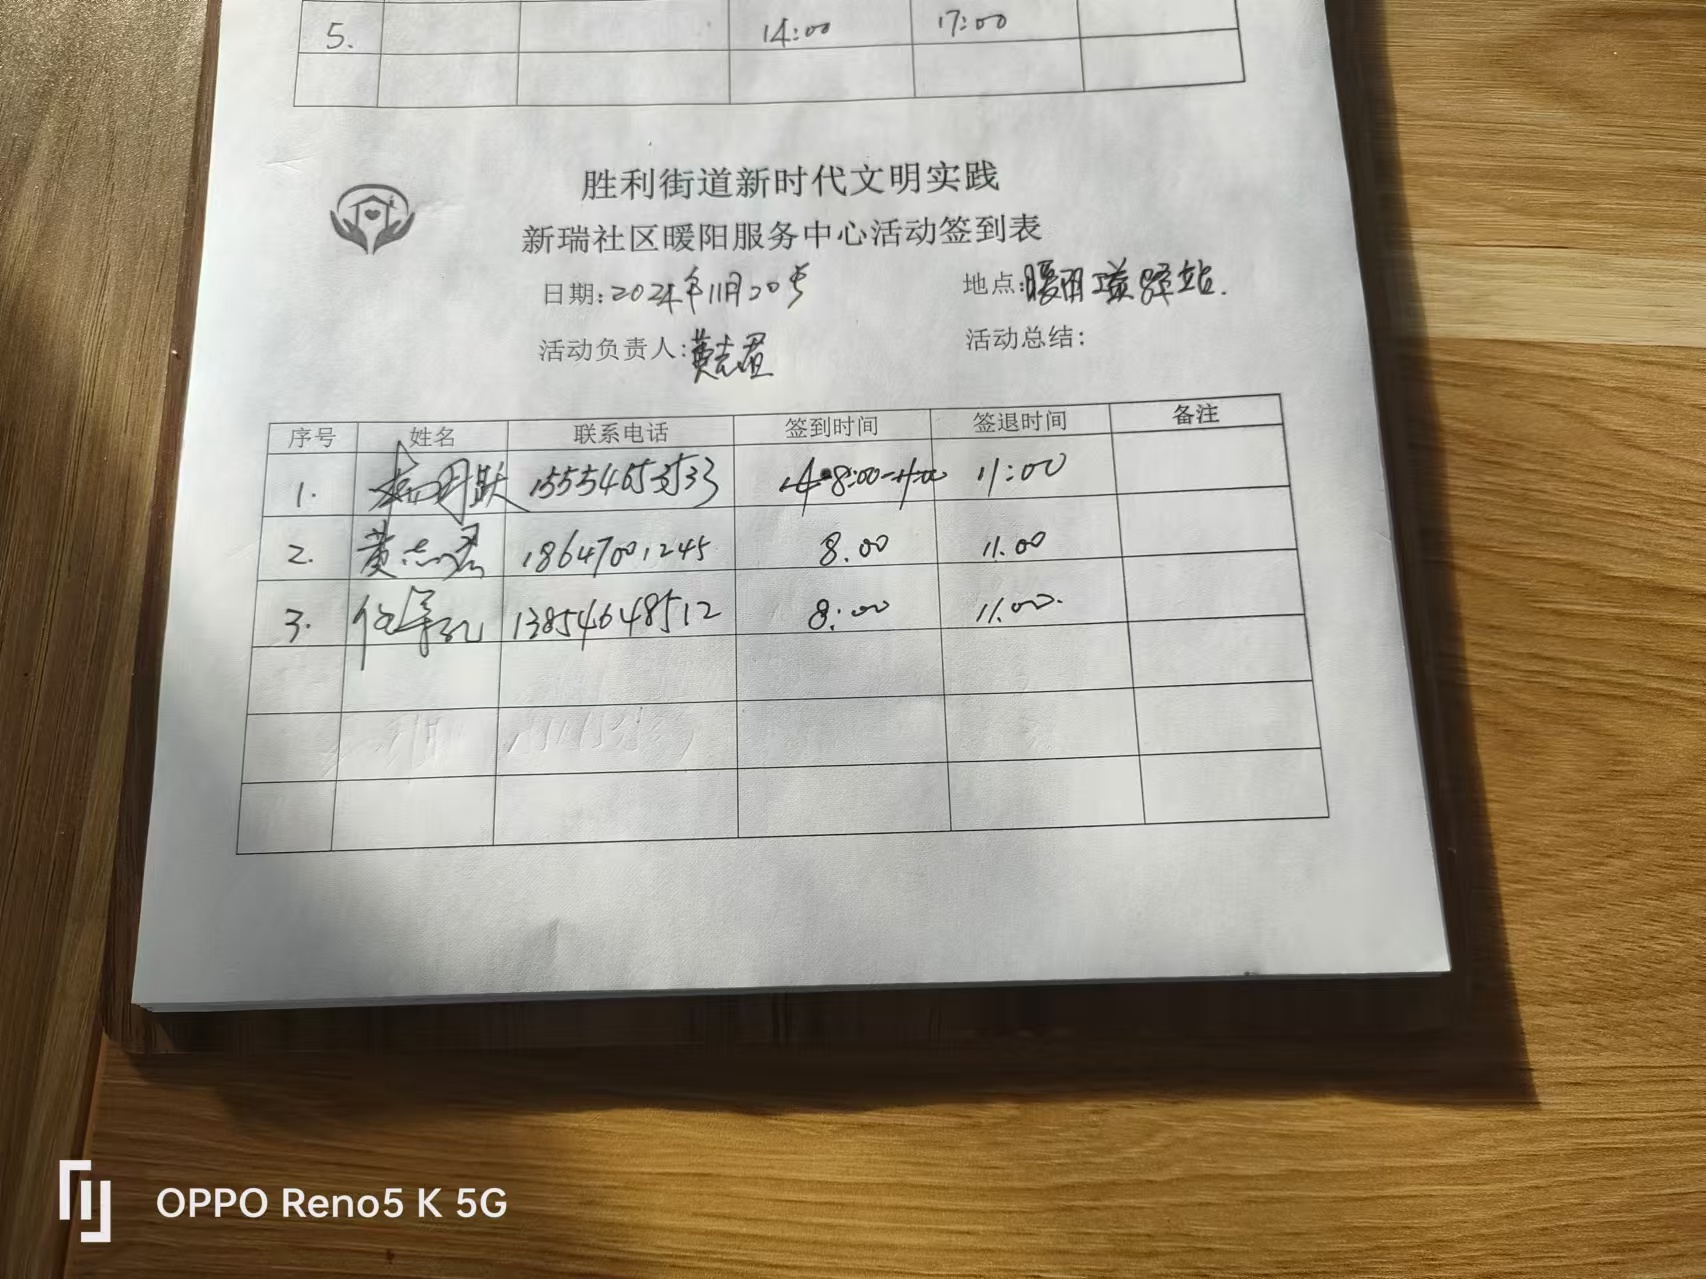 5. 14:00 17:00
胜利街道新时代文明实践
新瑞社区暖阳服务中心活动签到表
日期:2024年11月20号 地点:暖阳 驿站.
活动负责人:黄志君 活动总结:
序号 姓名 联系电话 签到时间 签退时间 备注
1. 15554653533 8:00 11:00
2. 黄志君 18647001245 8.00 11.00
3. 13854648512 8:00 11.00.
OPPO Reno5 K 5G